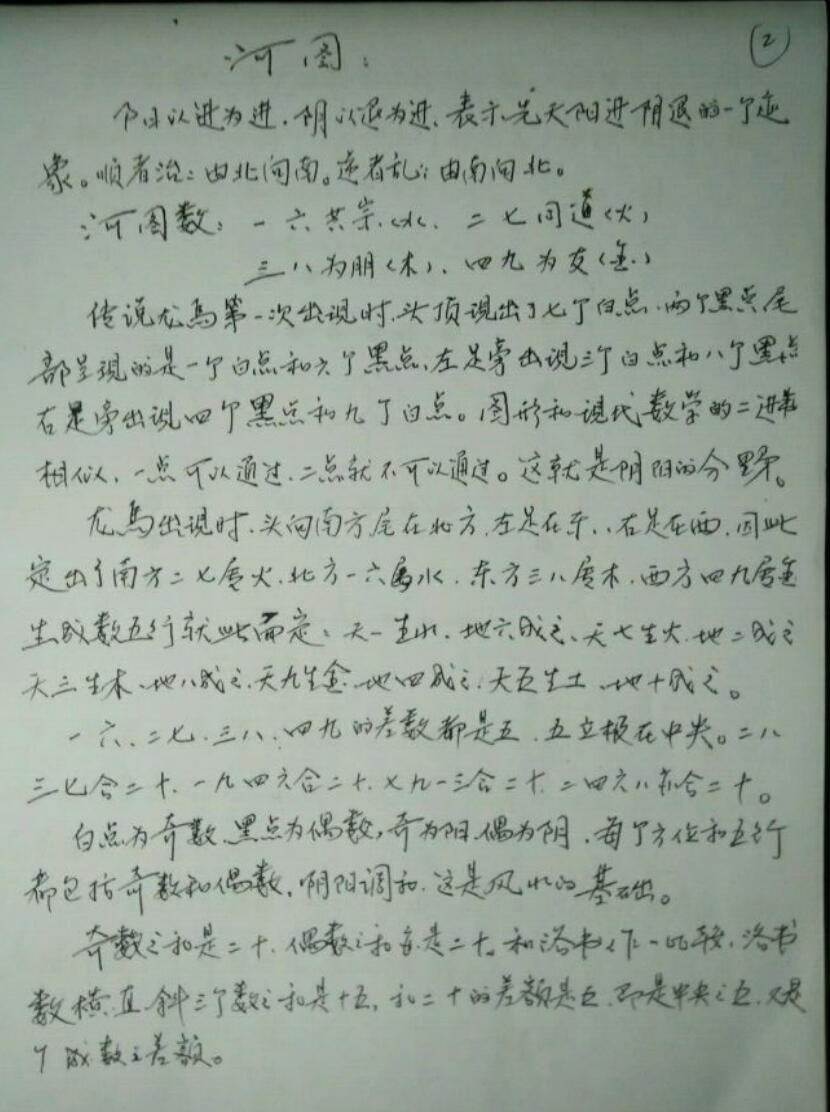 ②
河图：
阳以进为进，阴以退为进，表示先天阳进阴退的一个迹
象。顺者治：由北向南。逆者乱：由南向北。
河图数：一六共宗（水），二七同道（火）
三八为朋（木），四九为友（金）
传说龙馬第一次出现时，头顶现出了七个白点，两个黑点尾
部呈现的是一个白点和六个黑点，左足旁出现三个白点和八个黑点
右足旁出现四个黑点和九个白点。图形和现代数学的二进制
相似，一点可以通过，二点就不可以通过。这就是阴阳的分野。
龙馬出现时，头向南方尾在北方，左足在东，右足在西，因此
定出了南方二七属火，北方一六属水，东方三八属木，西方四九属金
生成数五行就此而定：天一生水，地六成之，天七生火，地二成之
天三生木，地八成之，天九生金，地四成之，天五生土，地十成之。
一六、二七、三八、四九的差数都是五，五立极在中央。二八
三七合二十，一九四六合二十，七九一三合二十，二四六八亦合二十。
白点为奇数，黑点为偶数，奇为阳，偶为阴，每个方位和五行
都包括奇数和偶数，阴阳调和，这是风水的基础。
奇数之和是二十，偶数之和亦是二十。和洛书作一比较，洛书
数横、直、斜三个数之和是十五，和二十的差额是五，即是中央之五，又是
成数之差额。